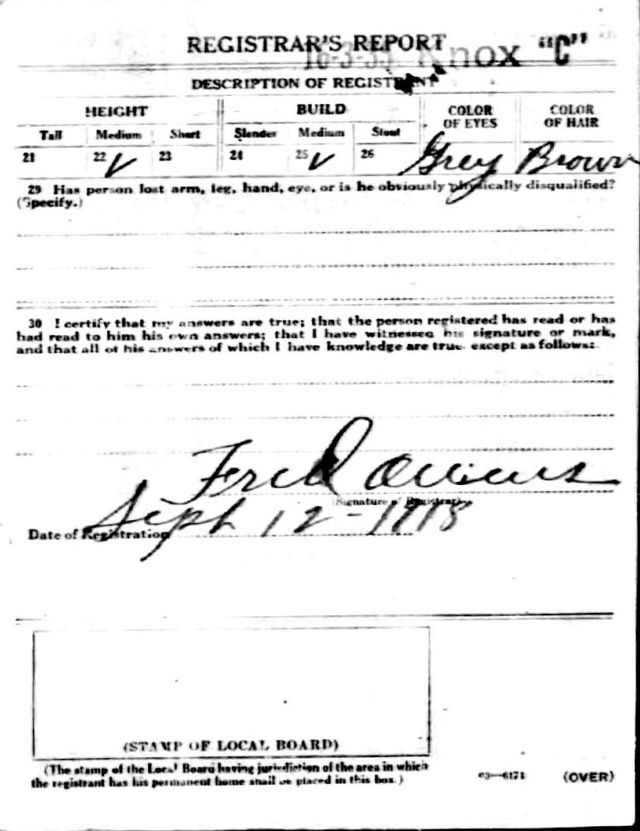 REGISTRAR'S REPORT
16-3-33 Knox "C"
DESCRIPTION OF REGISTRANT
HEIGHT BUILD COLOR OF EYES COLOR OF HAIR
Tall Medium Short Slender Medium Stout
21 22 ✓ 23 24 25 ✓ 26 Grey Brown
29 Has person lost arm, leg, hand, eye, or is he obviously physically disqualified?
(Specify.)
30 I certify that my answers are true; that the person registered has read or has
had read to him his own answers; that I have witnessed his signature or mark,
and that all of his answers of which I have knowledge are true except as follows:
Fred Owens
(Signature of Registrar)
Date of Registration Sept 12-1918
(STAMP OF LOCAL BOARD)
(The stamp of the Local Board having jurisdiction of the area in which
the registrant has his permanent home shall be placed in this box.)
03—6171 (OVER)